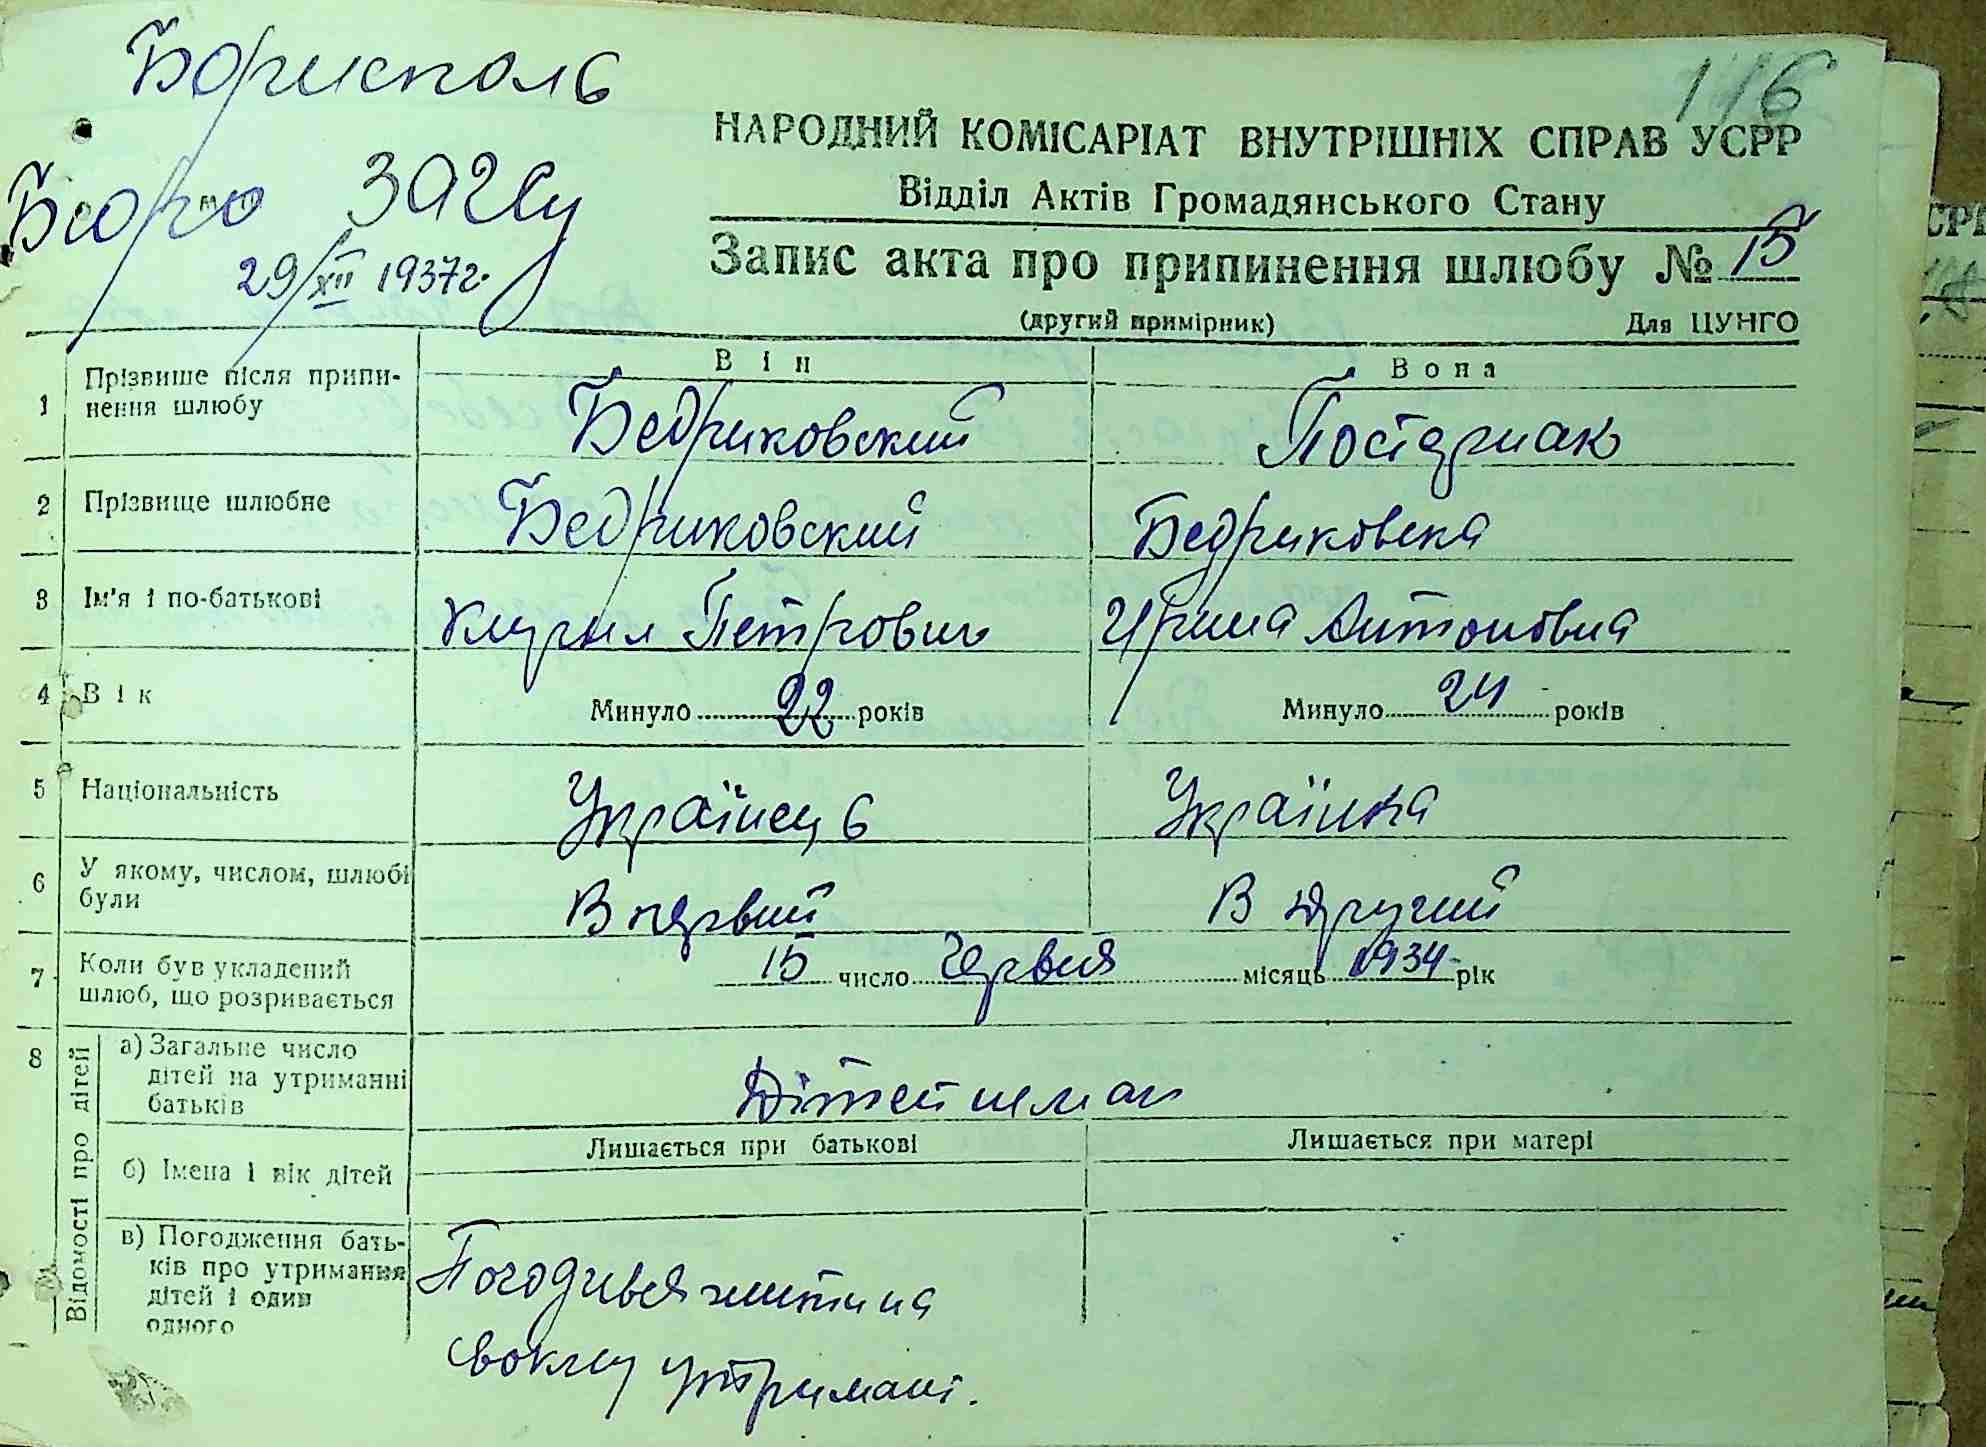 Борисполь
116
НАРОДНИЙ КОМІСАРІАТ ВНУТРІШНІХ СПРАВ УСРР
Бюро ЗАГСу
Відділ Актів Громадянського Стану
29/XII 1937г.
Запис акта про припинення шлюбу № 15
(другий примірник) Для ЦУНГО
Він Вона
1 Прізвише після припи-
нення шлюбу
Бедриковский Постернак
2 Прізвище шлюбне Бедриковский Бедриковска
3 Ім'я і по-батькові Петрович Ирина Антоновна
4 Вік Минуло 22 років Минуло 24 років
5 Національність Українець Українка
6 У якому, числом, шлюбі
були
В первий В другий
7 Коли був укладений
шлюб, що розривається
15 число Червня місяць 1934 рік
8 Відомості про дітей
а) Загальне число
дітей на утриманні
батьків
Дітей немає
б) Імена і вік дітей Лишається при батькові Лишається при матері
в) Погодження бать-
ків про утримання
дітей і один
одного
на
утримані.